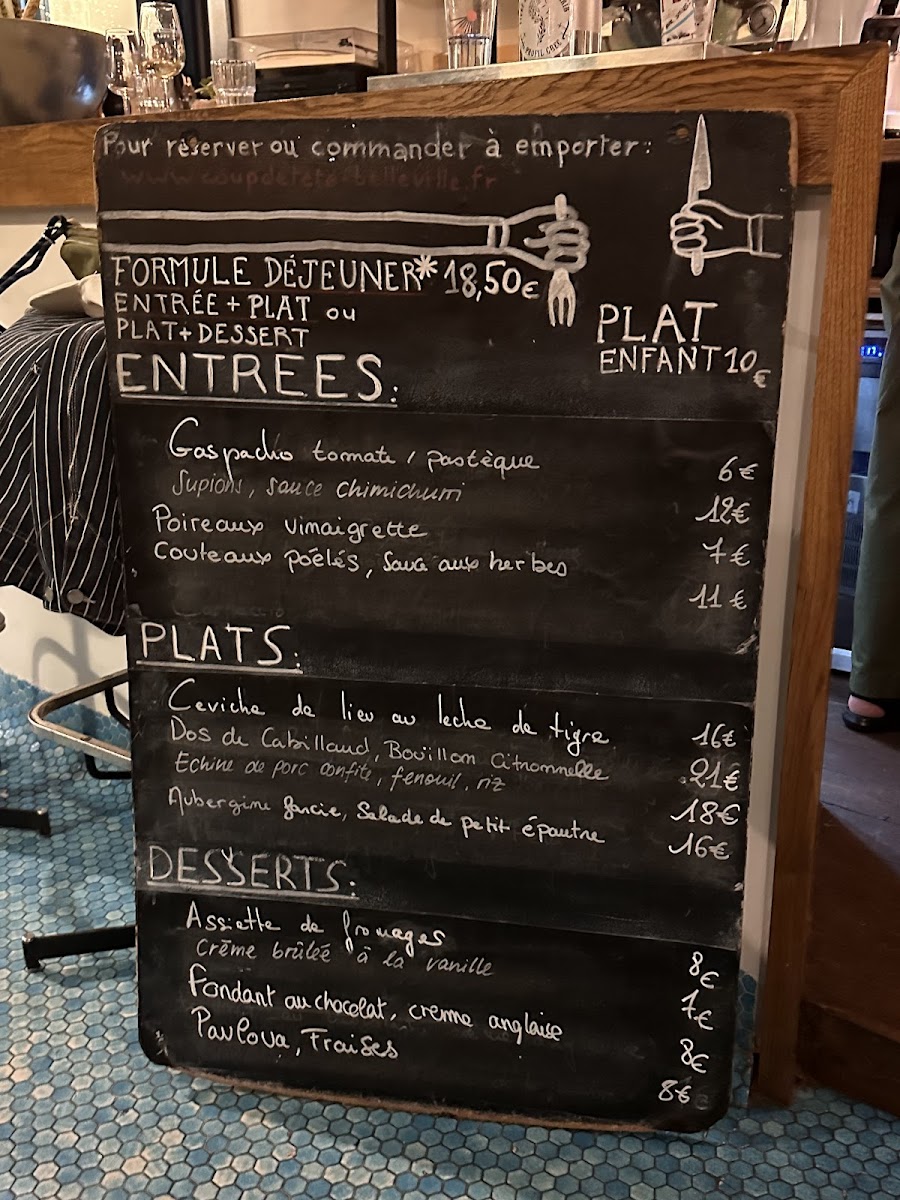 Pour réserver ou commander à emporter:
www.coupdetete-belleville.fr
FORMULE DÉJEUNER* 18,50€
ENTRÉE + PLAT ou
PLAT + DESSERT
PLAT
ENFANT 10€
ENTREES:
Gaspacho tomate / pastèque 6€
Supions, sauce chimichurri 12€
Poireaux vinaigrette 7€
Couteaux poêlés, sauce aux herbes 11€
PLATS:
Ceviche de lieu au leche de tigre 16€
Dos de Cabillaud, Bouillon Citronnelle 21€
Echine de porc confite, fenouil, riz 18€
Aubergine farcie, Salade de petit épautre 16€
DESSERTS:
Assiette de fromages 8€
Crème brûlée à la vanille 7€
Fondant au chocolat, creme anglaise 8€
Pavlova, Fraises 8€